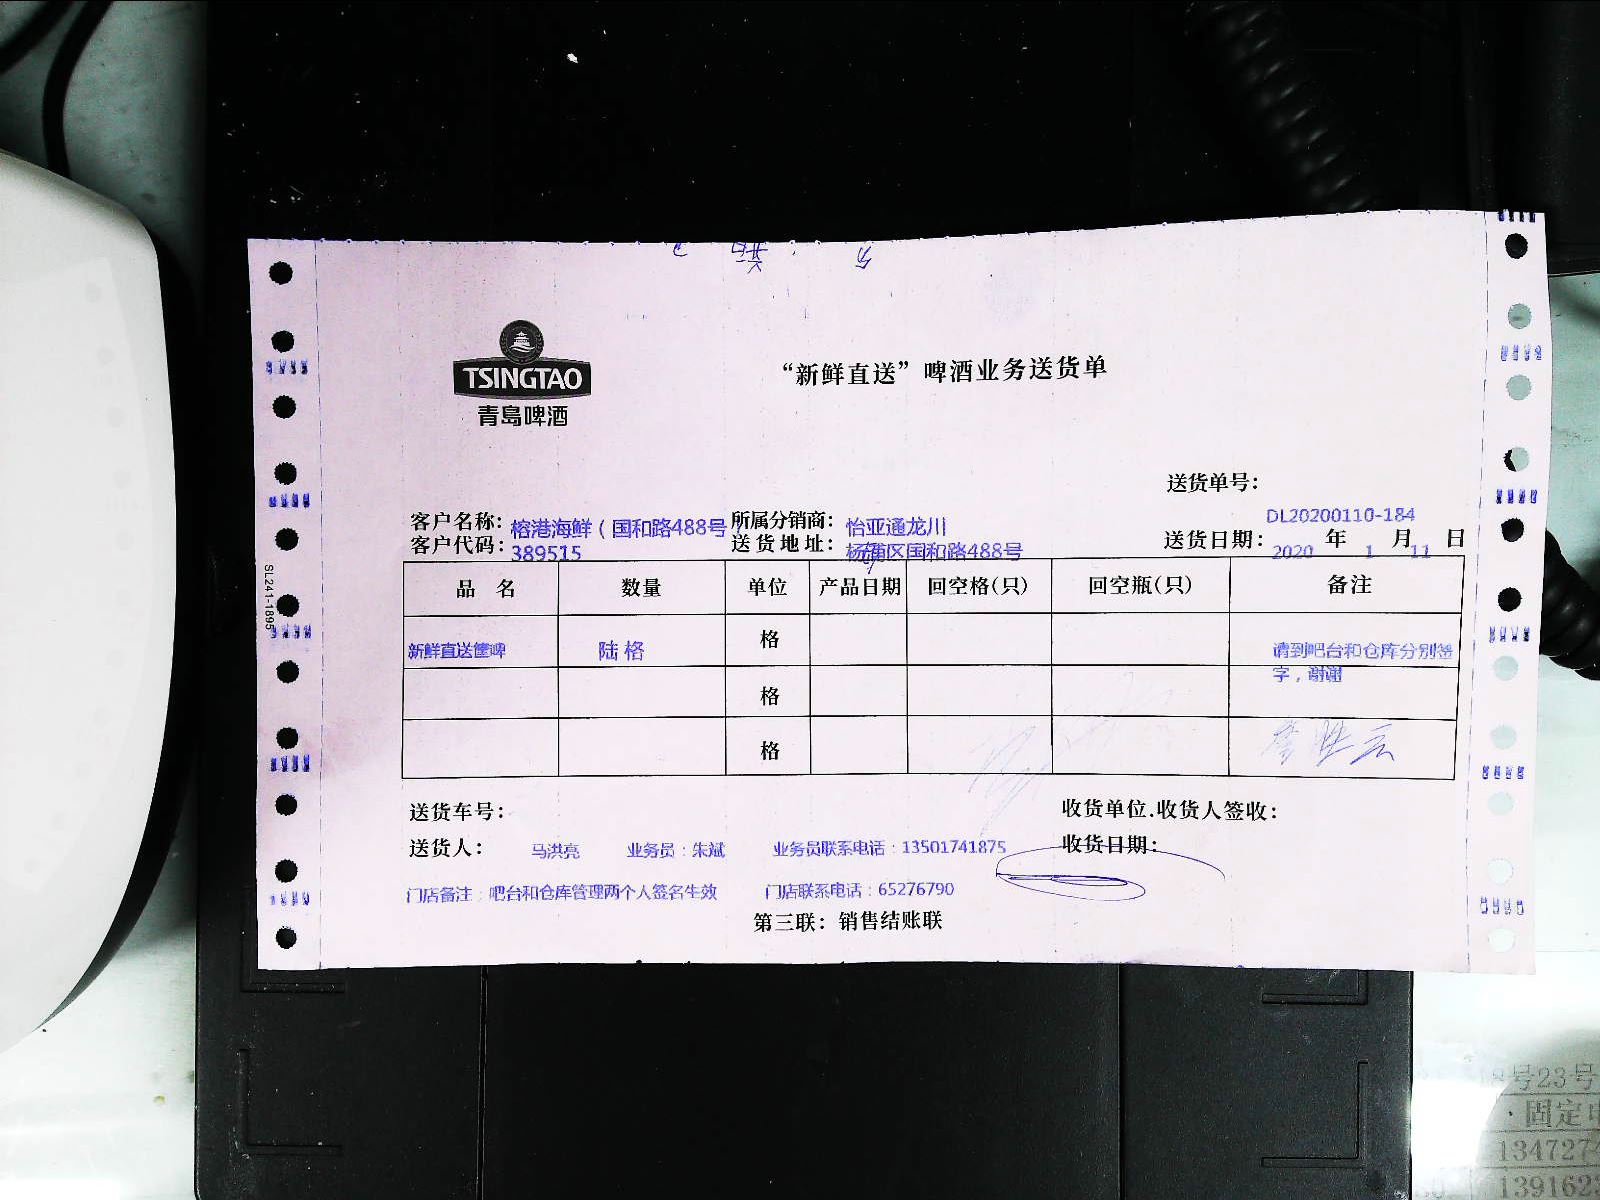 TSINGTAO
青岛啤酒
“新鲜直送”啤酒业务送货单
送货单号：
DL20200110-184
客户名称：榕港海鲜（国和路488号 所属分销商：怡亚通龙川
客户代码：389515 送货地址：杨浦区国和路488号 送货日期：2020 年 1 月 11 日
品 名 数量 单位 产品日期 回空格(只) 回空瓶(只) 备注
新鲜直送筐啤 陆格 格 请到吧台和仓库分别签
字，谢谢
格
格
送货车号： 收货单位.收货人签收：
送货人： 马洪亮 业务员：朱斌 业务员联系电话：13501741875 收货日期：
门店备注：吧台和仓库管理两个人签名生效 门店联系电话：65276790
第三联：销售结账联
SL241-1895
号23号
固定
134727
139162